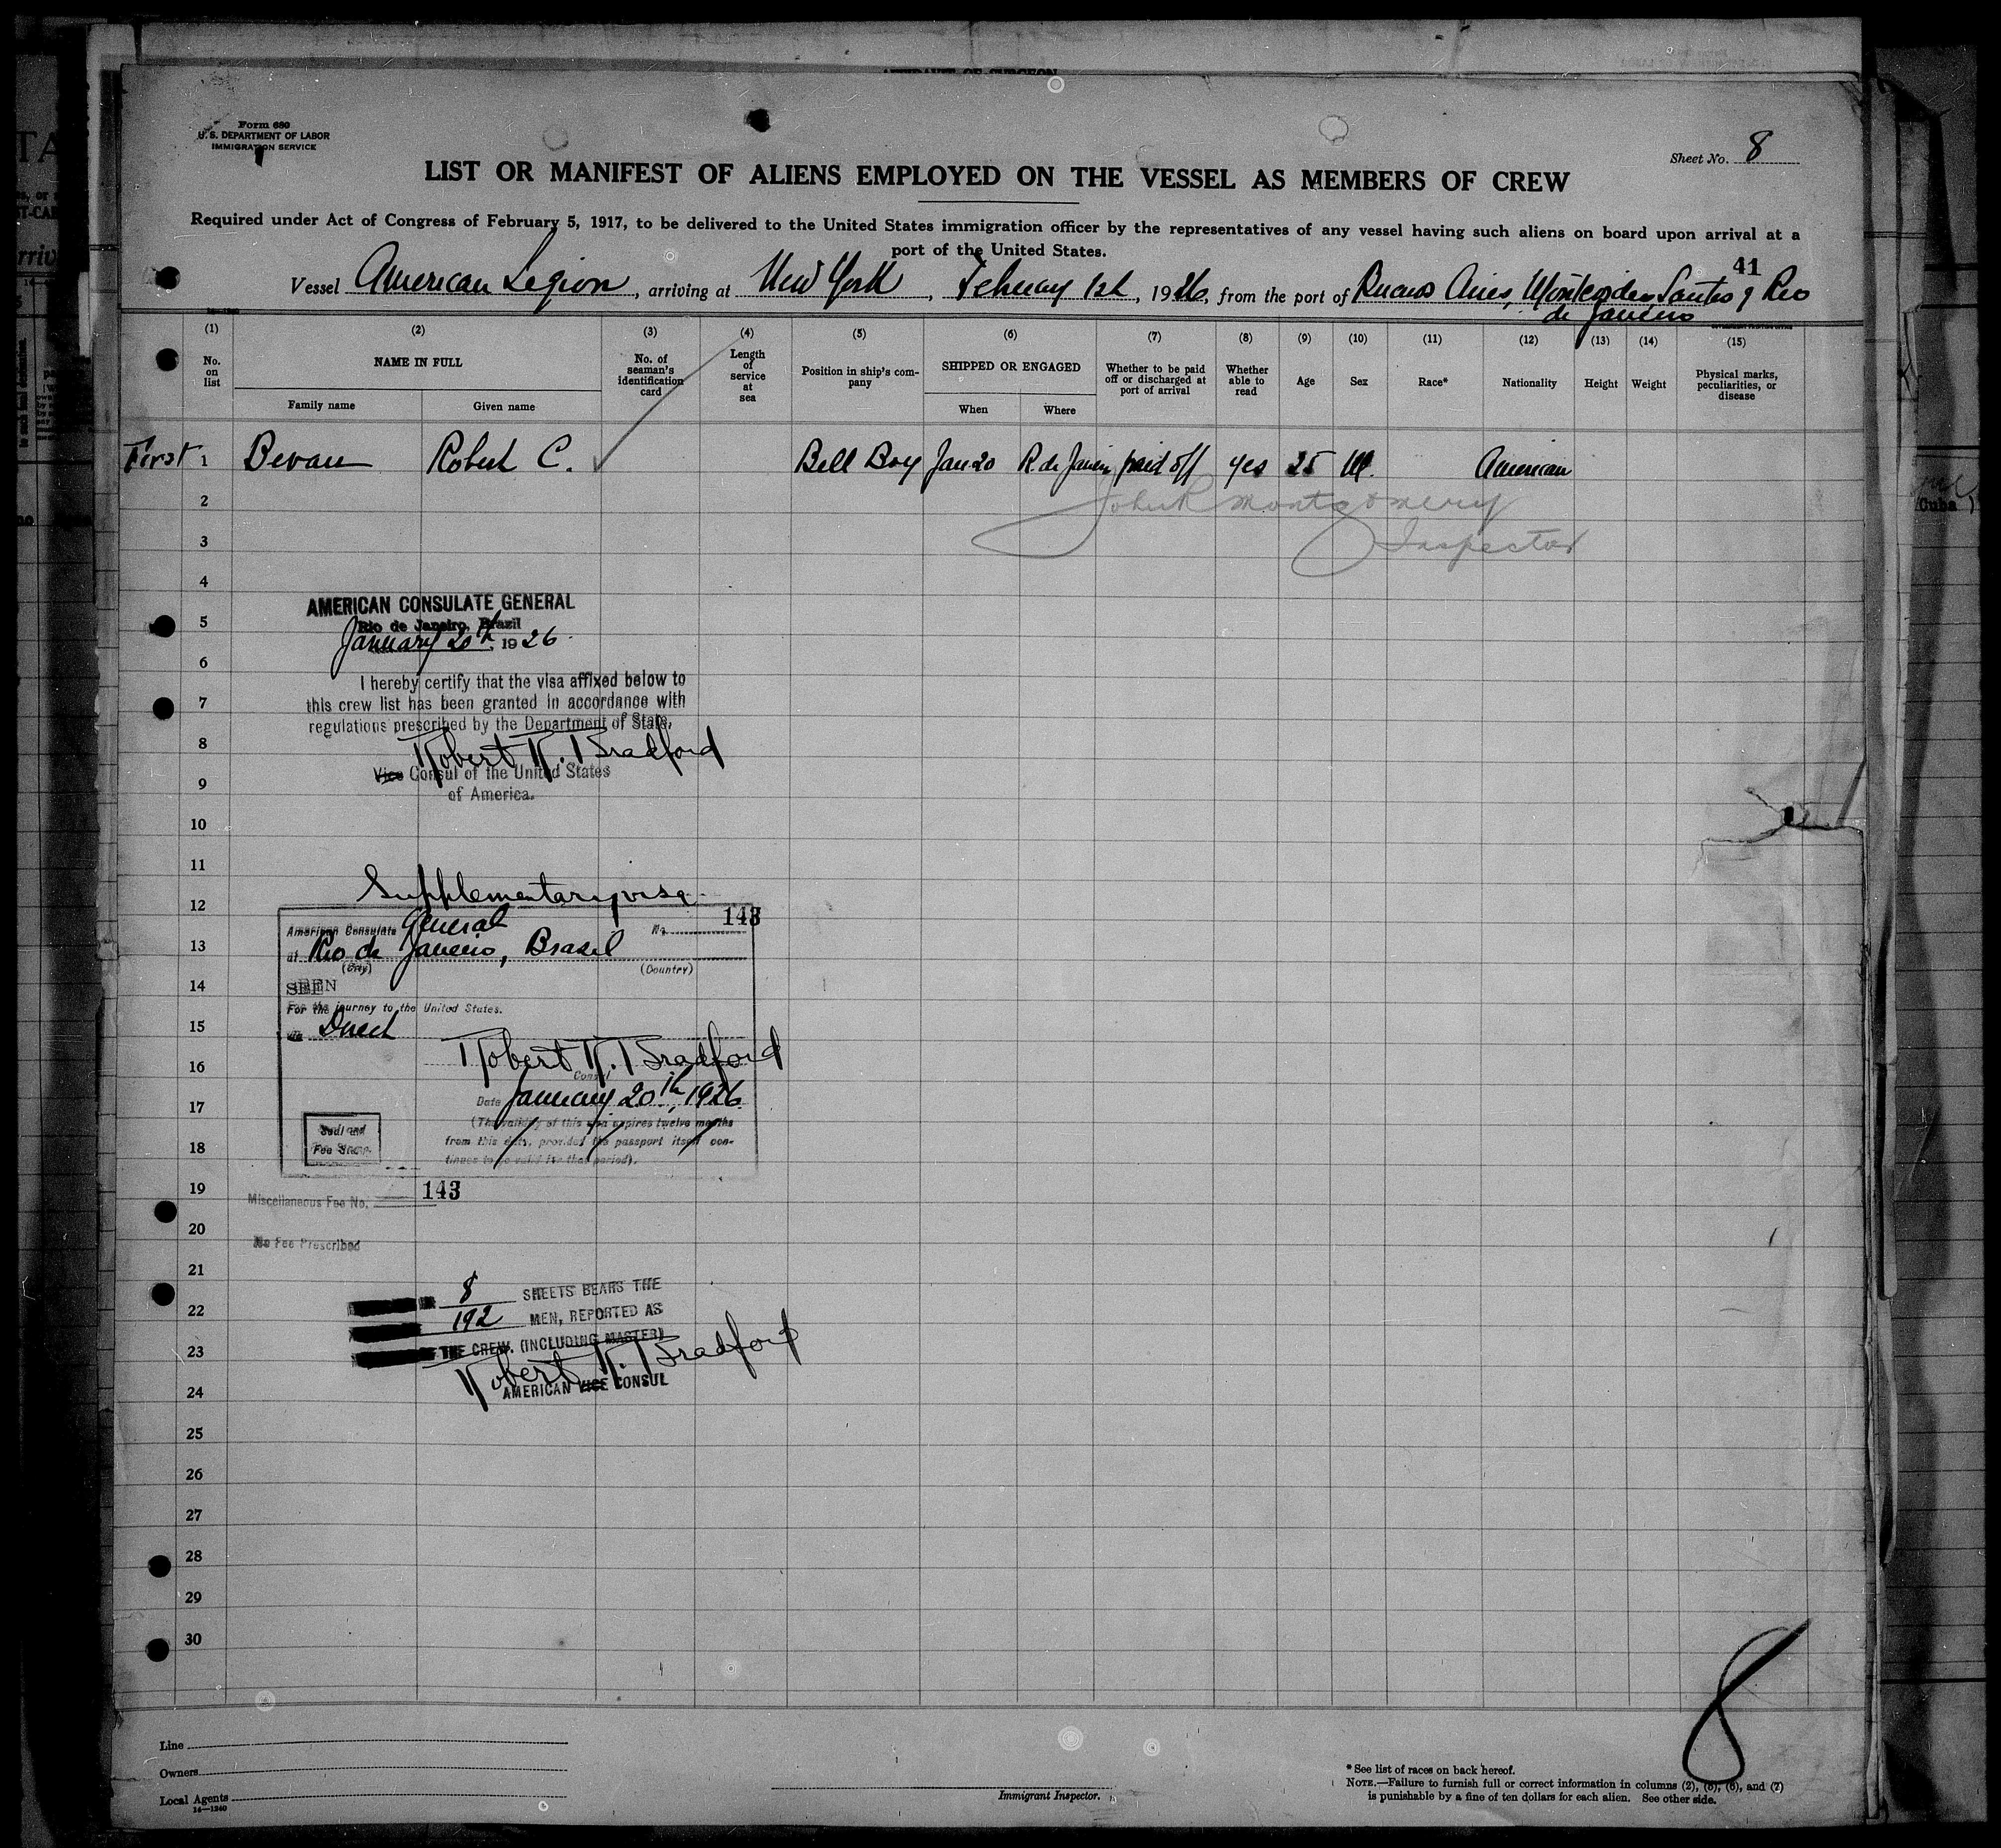 AFFIDAVIT OF SURGEON
Form 680
U. S. DEPARTMENT OF LABOR
IMMIGRATION SERVICE
Sheet No. 8
LIST OR MANIFEST OF ALIENS EMPLOYED ON THE VESSEL AS MEMBERS OF CREW
Required under Act of Congress of February 5, 1917, to be delivered to the United States immigration officer by the representatives of any vessel having such aliens on board upon arrival at a
port of the United States.
41
Vessel American Legion, arriving at New York, February 1st, 1926, from the port of Buenos Aires, Montevideo Santos & Rio
de Janeiro
(1) (2) (3) (4) (5) (6) (7) (8) (9) (10) (11) (12) (13) (14) (15)
No. on list
NAME IN FULL
Family name
Given name
No. of seaman's identification card
Length of service at sea
Position in ship's company
SHIPPED OR ENGAGED
When
Where
Whether to be paid off or discharged at port of arrival
Whether able to read
Age
Sex
Race*
Nationality
Height
Weight
Physical marks, peculiarities, or disease
First 1 Bevan Robert C. Bell Boy Jan 20 R. de Janeiro paid off yes 25 M. American
2 John R Montgomery
3 Inspector
4
AMERICAN CONSULATE GENERAL
5 Rio de Janeiro, Brazil
January 20th, 1926.
6
I hereby certify that the visa affixed below to
7 this crew list has been granted in accordance with
regulations prescribed by the Department of State.
8 Robert R. Bradford
Vice Consul of the United States
9 of America.
10
11
Supplementary visa
12
143
American Consulate General No.
13 at Rio de Janeiro, Brasil
(City) (Country)
14 SEEN
For the journey to the United States.
15 via Direct
16 Robert R. Bradford
Consul
17 Date January 20th, 1926
(The validity of this visa expires twelve months
18 from this date, provided the passport itself con-
tinues to be valid for that period).
Seal and
Fee Stamp
19 Miscellaneous Fee No. 143
20 No Fee Prescribed
21
8 SHEETS BEARS THE
22 192 MEN, REPORTED AS
23 THE CREW. (INCLUDING MASTER)
Robert R. Bradford
24 AMERICAN VICE CONSUL
25
26
27
28
29
30
8
Line
Owners
Local Agents
14—1240
Immigrant Inspector.
* See list of races on back hereof.
NOTE.—Failure to furnish full or correct information in columns (2), (5), (6), and (7)
is punishable by a fine of ten dollars for each alien. See other side.
Cuba